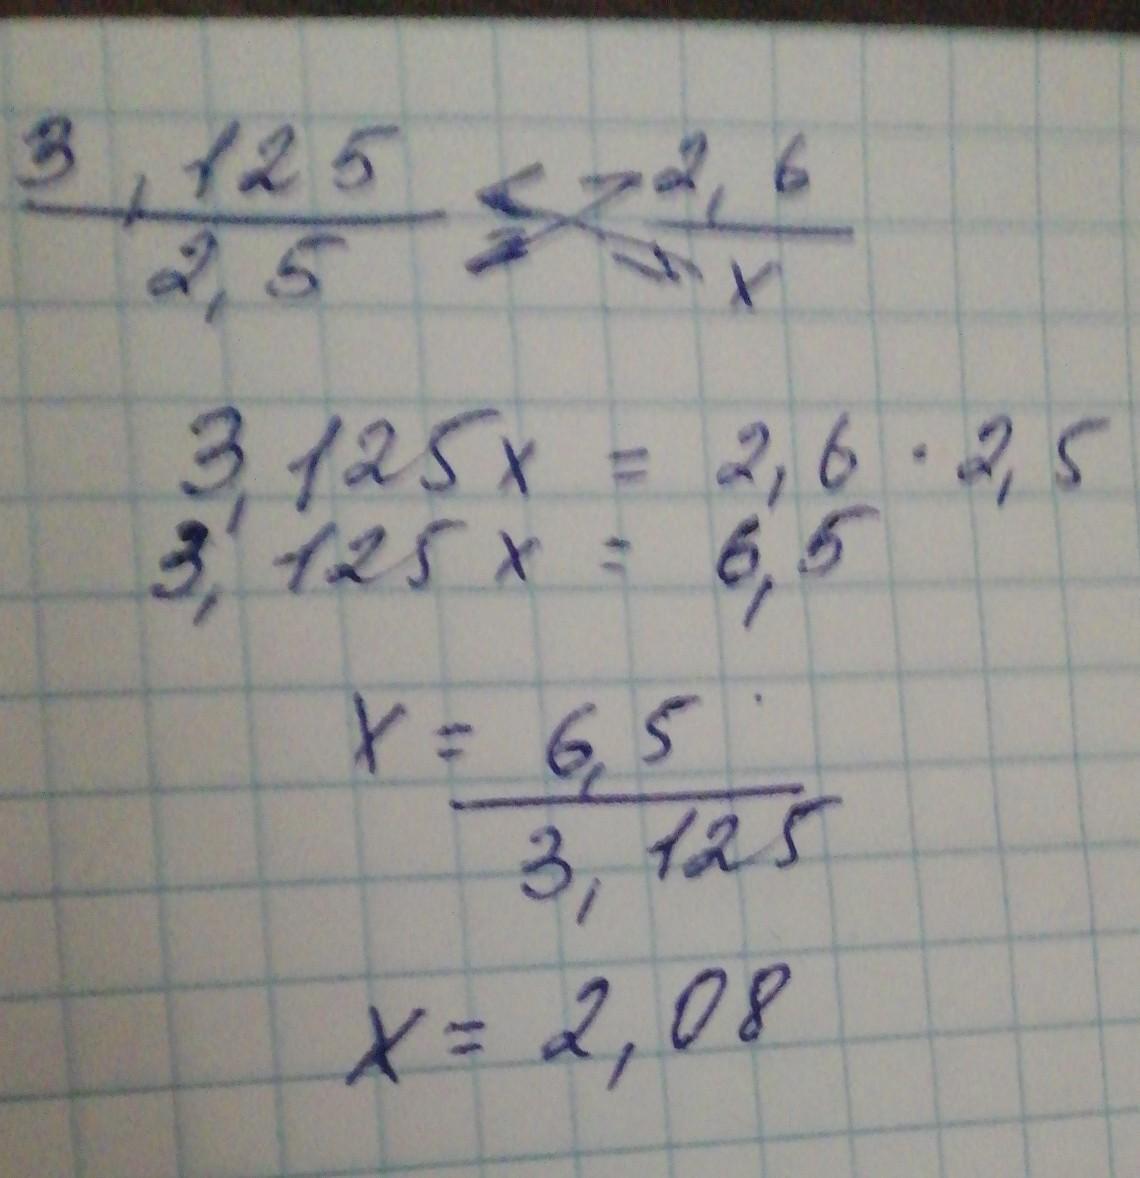 3,125 / 2,5 = 2,6 / x
3,125x = 2,6 · 2,5
3,125x = 6,5
x = 6,5 / 3,125
x = 2,08